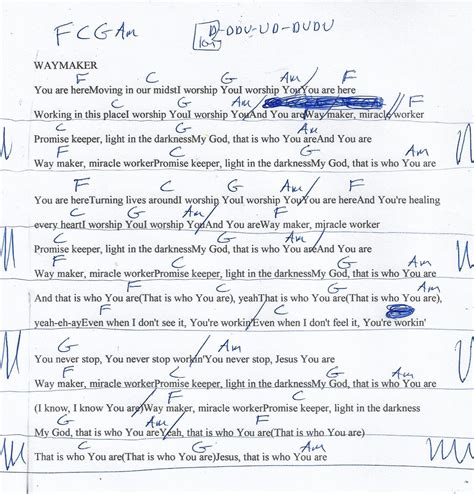 F C G Am D-DDU-UD-DUDU
WAYMAKER
F C G Am F
You are hereMoving in our midstI worship YouI worship YouYou are here
C G Am F
Working in this placeI worship YouI worship YouAnd You areWay maker, miracle worker
C G Am
Promise keeper, light in the darknessMy God, that is who You areAnd You are
F C G Am
Way maker, miracle workerPromise keeper, light in the darknessMy God, that is who You are
F C G Am F
You are hereTurning lives aroundI worship YouI worship YouYou are hereAnd You're healing
C G Am F
every heartI worship YouI worship YouAnd You areWay maker, miracle worker
C G Am
Promise keeper, light in the darknessMy God, that is who You areAnd You are
F C G Am
Way maker, miracle workerPromise keeper, light in the darknessMy God, that is who You are
F C G Am
And that is who You are(That is who You are), yeahThat is who You are(That is who You are),
F C
yeah-eh-ayEven when I don't see it, You're workin'Even when I don't feel it, You're workin'
G Am
You never stop, You never stop workin'You never stop, Jesus You are
F C G Am
Way maker, miracle workerPromise keeper, light in the darknessMy God, that is who You are
F C
(I know, I know You are)Way maker, miracle workerPromise keeper, light in the darkness
G Am F
My God, that is who You areYeah, that is who You are(That is who You are)
C G Am
That is who You are(That is who You are)Jesus, that is who You are